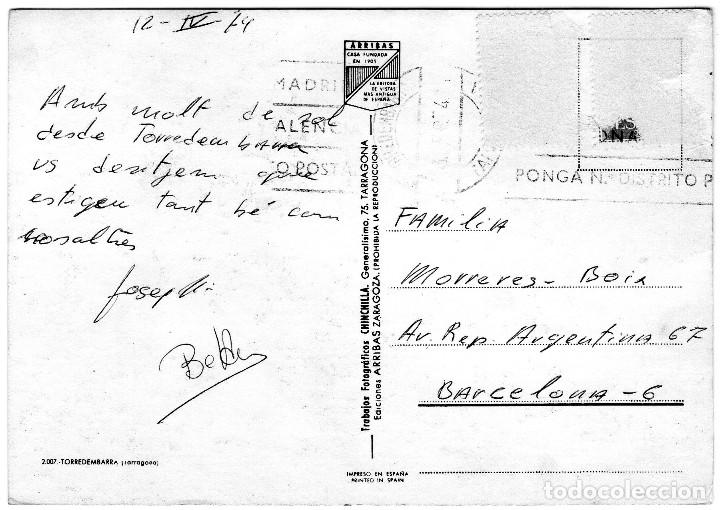 12-IV-74
Amb molt de sol
desde Torredembarra
us desitjem que
estigeu tant bé com
nosaltres
Josep Mª
ARRIBAS
CASA FUNDADA
EN 1905
LA EDITORA
DE VISTAS
MAS ANTIGUA
DE ESPAÑA
MADRI
ALENCIA
O POSTA
PONGA N.º DISTRITO P
FAMILIA
Morreres - Boix
Av. Rep. Argentina 67
BARCELONA - 6
Trabajos Fotográficos CHINCHILLA. Generalísimo, 75. TARRAGONA
Ediciones ARRIBAS ZARAGOZA. (PROHIBIDA LA REPRODUCCION)
2.007.-TORREDEMBARRA (Tarragona)
IMPRESO EN ESPAÑA
PRINTED IN SPAIN
todocoleccion.net